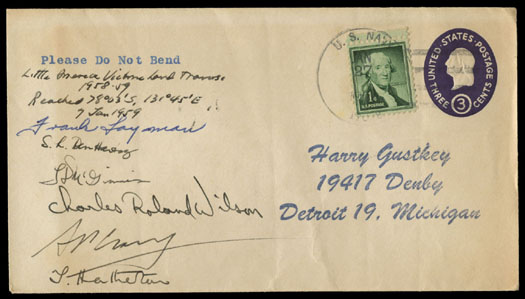 Please Do Not Bend
Little America Victoria Land Traverse
1958-59
Reached 78°03'S, 131°45'E
7 Jan 1959
Frank Layman
S. L. Den Hartog
L. McGinnis
Charles Roland Wilson
T. Hatherton
U. S. NAVY
1¢
U.S. POSTAGE
UNITED·STATES·POSTAGE
THREE 3 CENTS
Harry Gustkey
19417 Denby
Detroit 19, Michigan